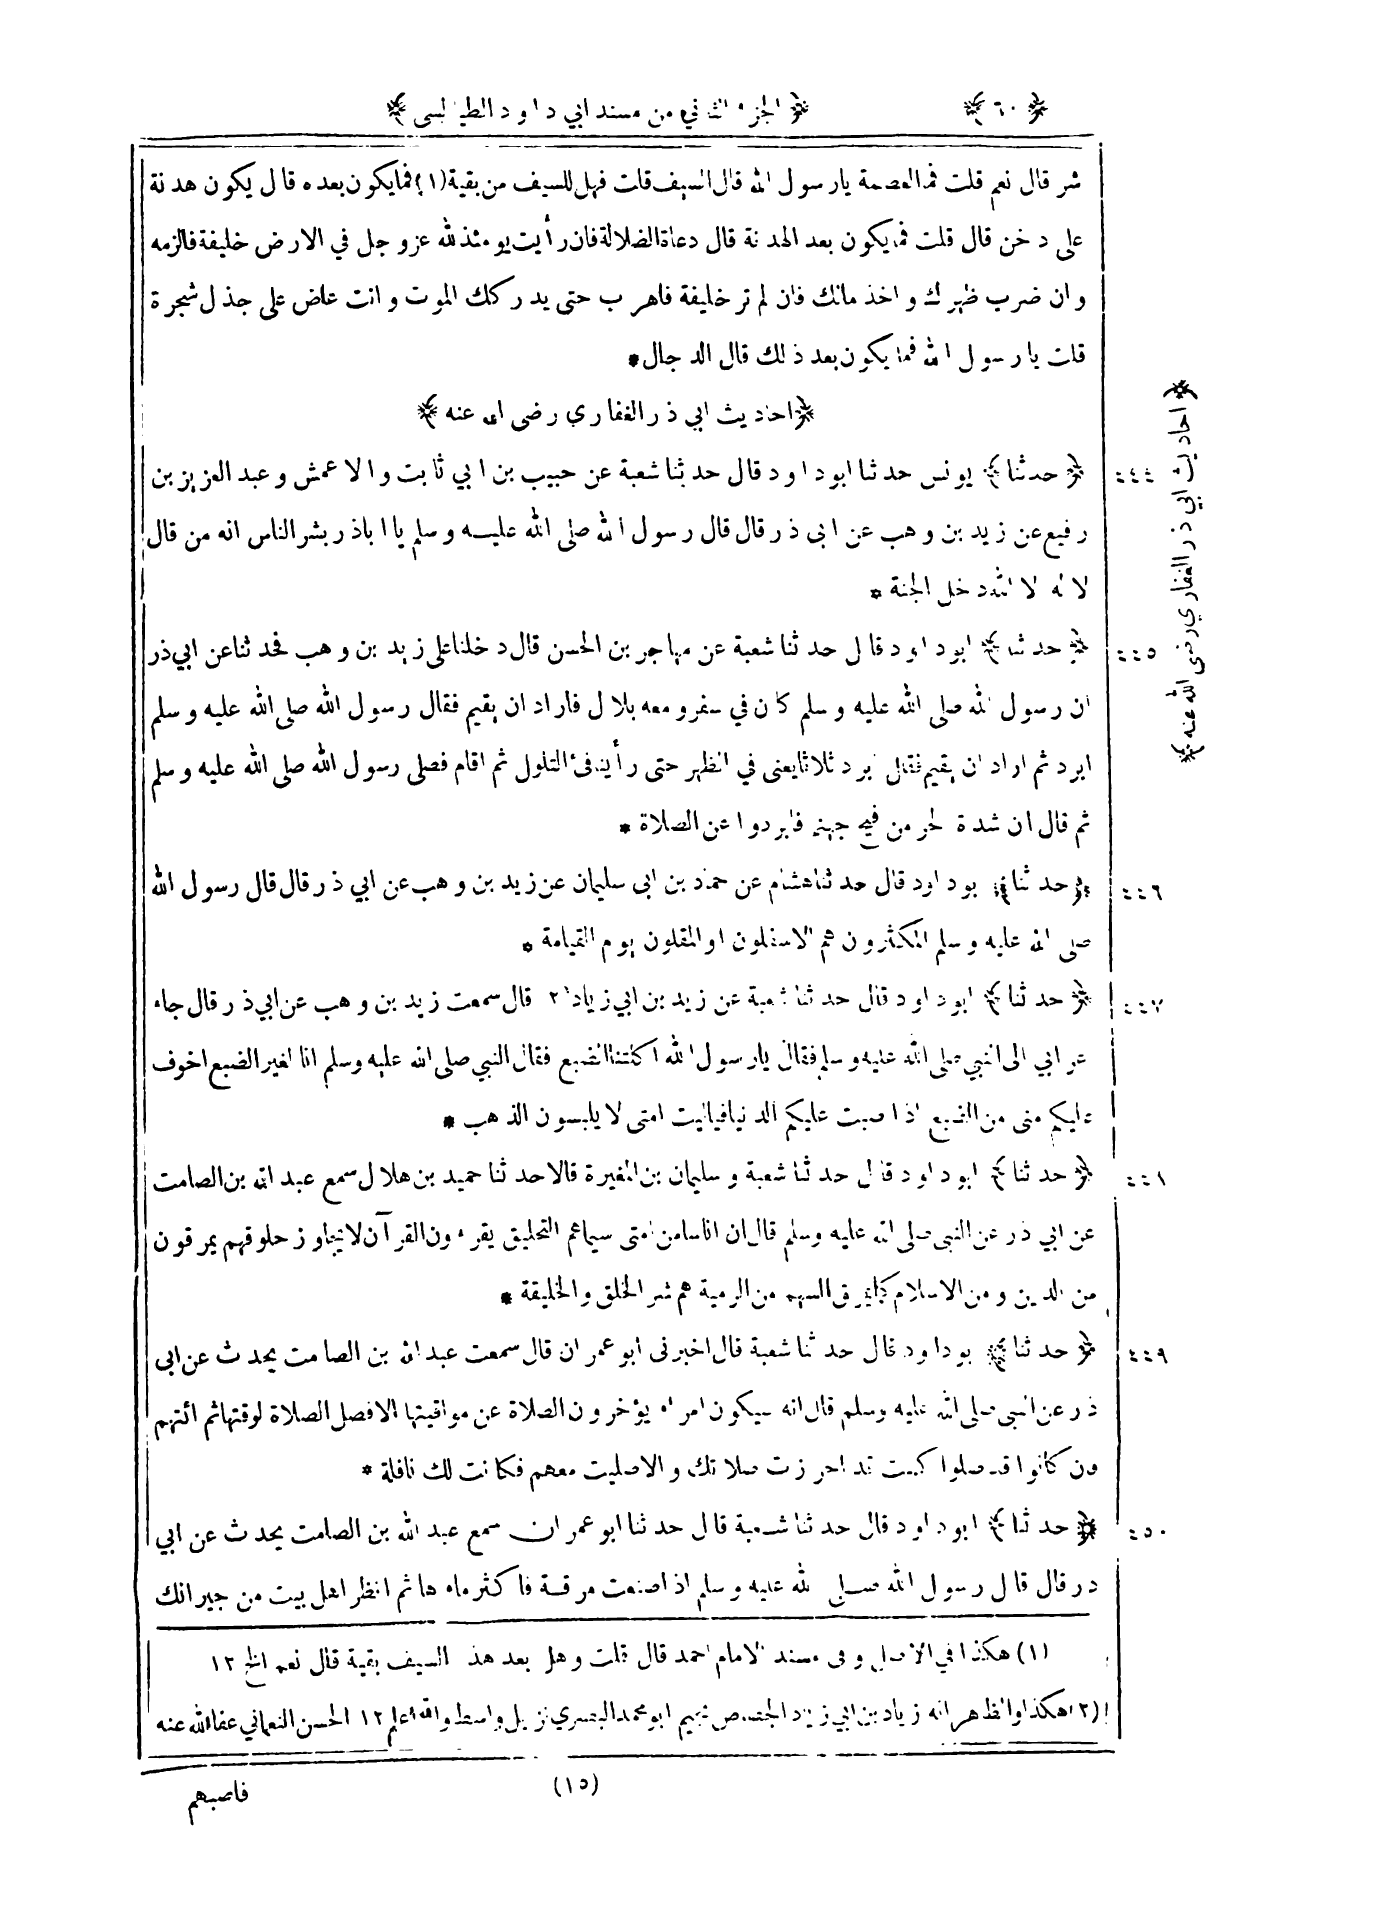 ﴿٦٠﴾ ﴿الجزء الثاني من مسند ابي داود الطيالسى﴾
شر قال نعم قلت فما العصمة يا رسول الله قال السيف قلت فهل للسيف من بقية (١) فما يكون بعده قال يكون هدنة
على دخن قال قلت فما يكون بعد الهدنة قال دعاة الضلالة فان رأيت يومئذ لله عز وجل في الارض خليفة فالزمه
وان ضرب ظهرك واخذ مالك فان لم تر خليفة فاهرب حتى يدركك الموت وانت عاض على جذل شجرة
قلت يا رسول الله فما يكون بعد ذلك قال الدجال *
﴿احاديث ابي ذر الغفاري رضى الله عنه﴾
﴿احاديث ابي ذر الغفاري رضى الله عنه﴾
٤٤٤ ﴿حدثنا﴾ يونس حدثنا ابو داود قال حدثنا شعبة عن حبيب بن ابي ثابت والاعمش وعبد العزيز بن
رفيع عن زيد بن وهب عن ابي ذر قال قال رسول الله صلى الله عليه وسلم يا اباذر بشر الناس انه من قال
لا اله الا الله دخل الجنة *
٤٤٥ ﴿حدثنا﴾ ابو داود قال حدثنا شعبة عن مهاجر بن الحسن قال دخلنا على زيد بن وهب فحدثنا عن ابي ذر
ان رسول الله صلى الله عليه وسلم كان في سفر ومعه بلال فاراد ان يقيم فقال رسول الله صلى الله عليه وسلم
ابرد ثم اراد ان يقيم فقال ابرد ثلاثا يعنى في الظهر حتى رأينا فئ التلول ثم اقام فصلى رسول الله صلى الله عليه وسلم
ثم قال ان شدة الحر من فيح جهنم فابردوا عن الصلاة *
٤٤٦ ﴿حدثنا﴾ ابو داود قال حدثنا هشام عن حماد بن ابى سليمان عن زيد بن وهب عن ابي ذر قال قال رسول الله
صلى الله عليه وسلم المكثرون هم الاسفلون او المقلون يوم القيامة *
٤٤٧ ﴿حدثنا﴾ ابو داود قال حدثنا شعبة عن زيد بن ابي زياد (٢) قال سمعت زيد بن وهب عن ابي ذر قال جاء
عرابي الى النبي صلى الله عليه وسلم فقال يا رسول الله اكلتنا الضبع فقال النبي صلى الله عليه وسلم انا لغير الضبع اخوف
عليكم منى من الضبع اذا صبت عليكم الدنيا فياليت امتى لا يلبسون الذهب *
٤٤٨ ﴿حدثنا﴾ ابو داود قال حدثنا شعبة وسليمان بن المغيرة قالا حدثنا حميد بن هلال سمع عبد الله بن الصامت
عن ابي ذر عن النبى صلى الله عليه وسلم قال ان اناسا من امتى سيماهم التحليق يقرءون القرآن لا يجاوز حلوقهم يمرقون
من الدين ومن الاسلام كما يمرق السهم من الرمية هم شر الخلق والخليقة *
٤٤٩ ﴿حدثنا﴾ ابو داود قال حدثنا شعبة قال اخبرنى ابو عمران قال سمعت عبد الله بن الصامت يحدث عن ابى
ذر عن النبى صلى الله عليه وسلم قال انه سيكون امراء يؤخرون الصلاة عن مواقيتها الا فصل الصلاة لوقتها ثم ائتهم
فان كانوا قد صلوا كنت قد احرزت صلاتك والا صليت معهم فكانت لك نافلة *
٤٥٠ ﴿حدثنا﴾ ابو داود قال حدثنا شعبة قال حدثنا ابو عمران سمع عبد الله بن الصامت يحدث عن ابي
ذر قال قال رسول الله صلى الله عليه وسلم اذا صنعت مرقة فاكثر ماءها ثم انظر اهل بيت من جيرانك
(١) هكذا في الاصل وفى مسند الامام احمد قال قلت وهل بعد هذا السيف بقية قال نعم الخ ١٢
(٢) هكذا والظاهر انه زياد بن ابي زياد الجصاص ابو محمد البصري نزيل واسط والله اعلم ١٢ الحسن النعماني عفا الله عنه
(١٥)
فاصبهم